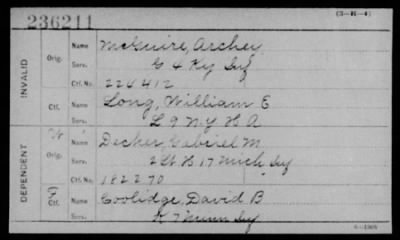 236211
(3—H—4)
INVALID
Orig.
Name McGuire, Archey
Serv. G 4 Ky Inf
Ctf. No. 224412
Ctf.
Name Long, William E
Serv. L 9 N.Y. H A
DEPENDENT
W
Orig.
Name Decker, Gabriel M.
Serv. 2 Lt. H 17 Mich Inf
Ctf. No. 182270
Ctf.
Name Coolidge, David B
Serv. K 7 Minn Inf
6—1306